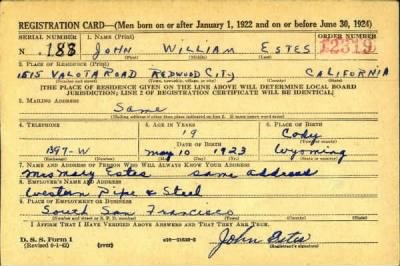 REGISTRATION CARD—(Men born on or after January 1, 1922 and on or before June 30, 1924)
SERIAL NUMBER 1. NAME (Print) ORDER NUMBER
N 188 JOHN WILLIAM ESTES 12319
(First) (Middle) (Last)
2. PLACE OF RESIDENCE (Print)
1515 VALOTA ROAD REDWOOD CITY CALIFORNIA
[THE PLACE OF RESIDENCE GIVEN ON THE LINE ABOVE WILL DETERMINE LOCAL BOARD
JURISDICTION; LINE 2 OF REGISTRATION CERTIFICATE WILL BE IDENTICAL]
3. MAILING ADDRESS
Same
[Mailing address if other than place indicated on line 2. If same insert word same]
4. TELEPHONE 5. AGE IN YEARS 6. PLACE OF BIRTH
19 Cody
DATE OF BIRTH
1397-W May 10 1923 Wyoming
(Exchange) (Number) (Mo.) (Day) (Yr.) (State or country)
7. NAME AND ADDRESS OF PERSON WHO WILL ALWAYS KNOW YOUR ADDRESS
Mrs Mary Estes same address
8. EMPLOYER'S NAME AND ADDRESS
Western Pipe & Steel
9. PLACE OF EMPLOYMENT OR BUSINESS
South San Francisco
(Number and street or R. F. D. number) (Town) (County) (State)
I AFFIRM THAT I HAVE VERIFIED ABOVE ANSWERS AND THAT THEY ARE TRUE.
D. S. S. Form 1
John Estes
(Registrant's signature)